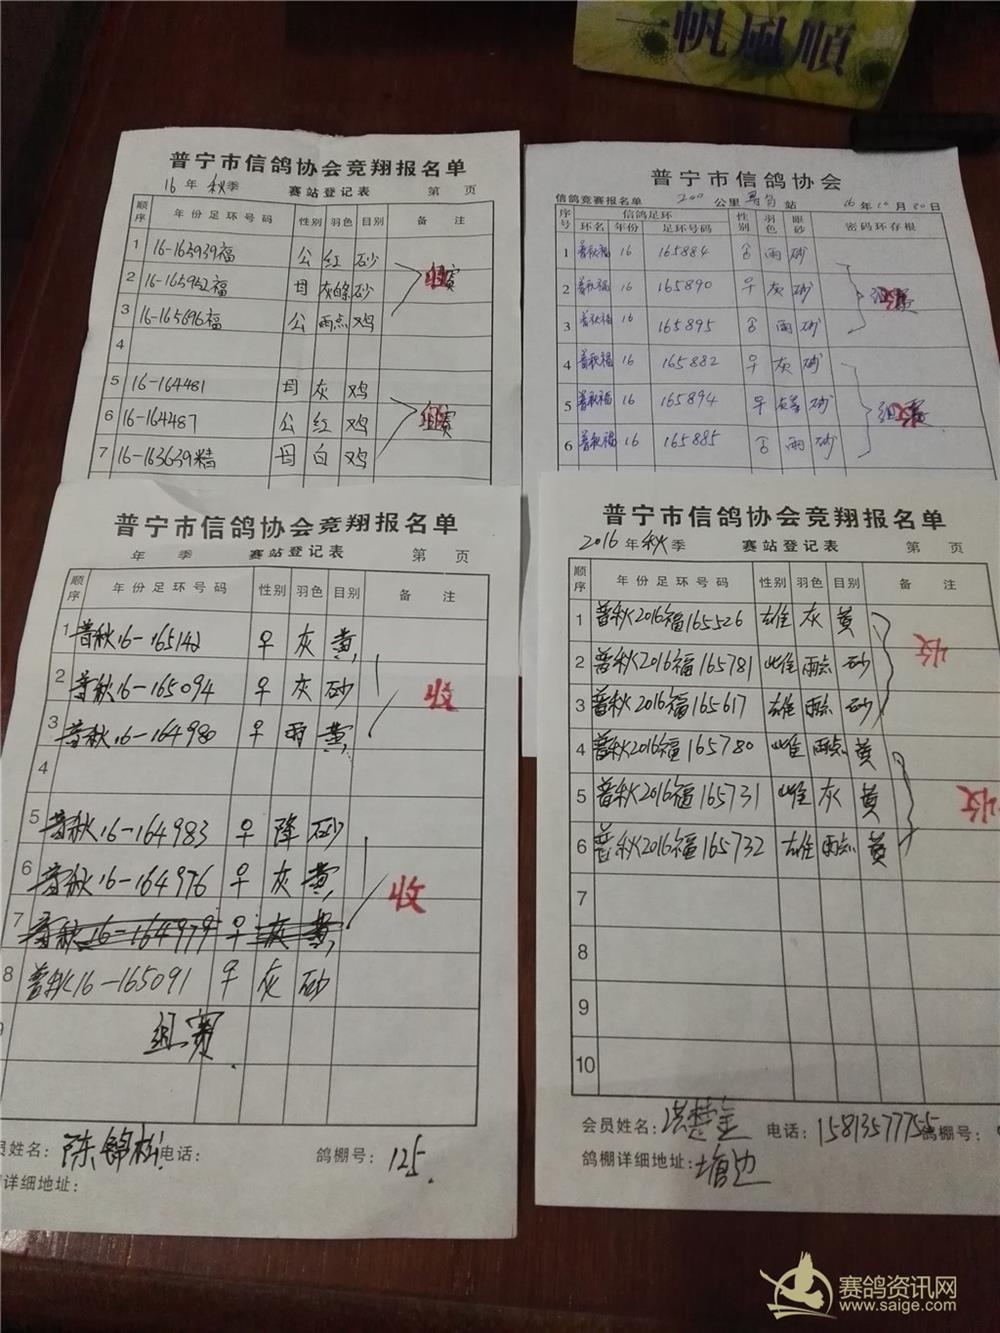 一帆風順
普宁市信鸽协会竞翔报名单
16 年 秋季 赛站登记表 第 页
顺序 年份足环号码 性别 羽色 目别 备 注
1 16-163939福 公 红 砂
2 16-165952福 母 灰白条 砂 组赛
3 16-165696福 公 雨点 鸡
4
5 16-164481 母 灰 鸡
6 16-164487 公 红 鸡 组赛
7 16-163639精 母 白 鸡
普宁市信鸽协会
信鸽竞赛报名单 200 公里 站 16 年 10 月 30 日
序号 信鸽足环 性别 羽色 眼砂 密码环存根
环名 年份 足环号码
1 普秋福 16 165884 雨 砂
2 普秋福 16 165890 ♀ 灰 砂 组赛
3 普秋福 16 165895 雨 砂
4 普秋福 16 165882 ♀ 灰 砂
5 普秋福 16 165894 ♀ 砂 组赛
6 普秋福 16 165885 雨 砂
普宁市信鸽协会竞翔报名单
年 季 赛站登记表 第 页
顺序 年份足环号码 性别 羽色 目别 备 注
1 普秋16-165142 ♀ 灰 黄
2 普秋16-165094 ♀ 灰 砂 收
3 普秋16-164980 ♀ 雨 黄
4
5 普秋16-164983 ♀ 降 砂
6 普秋16-164976 ♀ 灰 黄 收
7 普秋16-164979 ♀ 灰 黄
8 普秋16-165091 ♀ 灰 砂
组赛
员姓名：陈锦松 电话： 鸽棚号：125.
详细地址：
普宁市信鸽协会竞翔报名单
2016 年 秋 季 赛站登记表 第 页
顺序 年份足环号码 性别 羽色 目别 备 注
1 普秋2016福165526 雄 灰 黄 收
2 普秋2016福165781 雌 雨点 砂
3 普秋2016福165617 雄 雨点 砂
4 普秋2016福165780 雌 雨点 黄
5 普秋2016福165731 雌 灰 黄 收
6 普秋2016福165732 雄 雨点 黄
7
8
9
10
会员姓名：洪楚金 电话：15813577755 鸽棚号：
鸽棚详细地址：塘边
赛鸽资讯网
www.saige.com